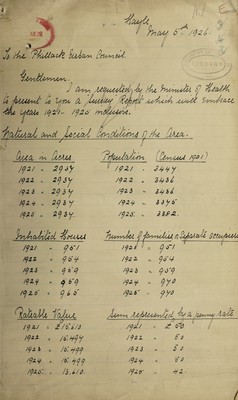 Hayle,
May 5th, 1926.
To the Phillack Urban Council.
Gentlemen,
I am requested by the Minister of Health
to present to you a Survey Report which will embrace
the years 1921 - 1925 inclusive.
Natural and Social Conditions of the Area.
Area in Acres Population (Census 1921)
1921 - 2937 1921 - 3447
1922 - 2937 1922 - 3436
1923 - 2937 1923 - 3436
1924 - 2937 1924 - 3375
1925 - 2937 1925 - 3382
Inhabited Houses Number of families or Separate occupiers
1921 - 951 1921 - 951
1922 - 954 1922 - 954
1923 - 959 1923 - 959
1924 - 959 1924 - 940
1925 - 965 1925 - 940
Rateable Value Sum represented by a penny rate
1921 - £15,610 1921 - £50
1922 - 15,497 1922 - 50
1923 - 15,499 1923 - 50
1924 - 15,499 1924 - 50
1925 - 13,610 1925 - 42